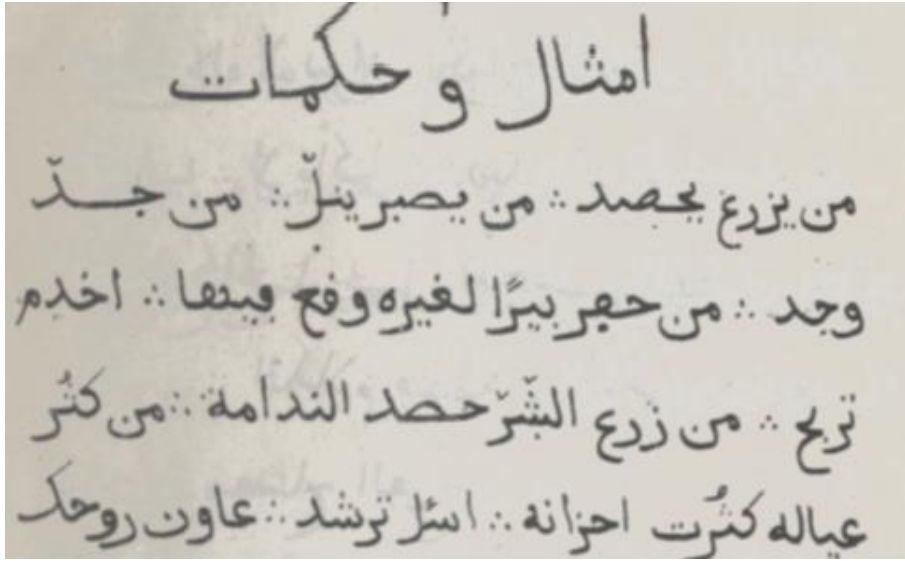 امثال و حكمات
من يزرع يحصد ∴ من يصبر ينلّ ∴ من جدّ
وجد ∴ من حفر بيرًا لغيره وفع فيها ∴ اخدم
تربح ∴ من زرع الشّرّ حصد الندامة ∴ من كثُر
عياله كثُرت احزانه ∴ اسئل ترشد ∴ عاون روحك